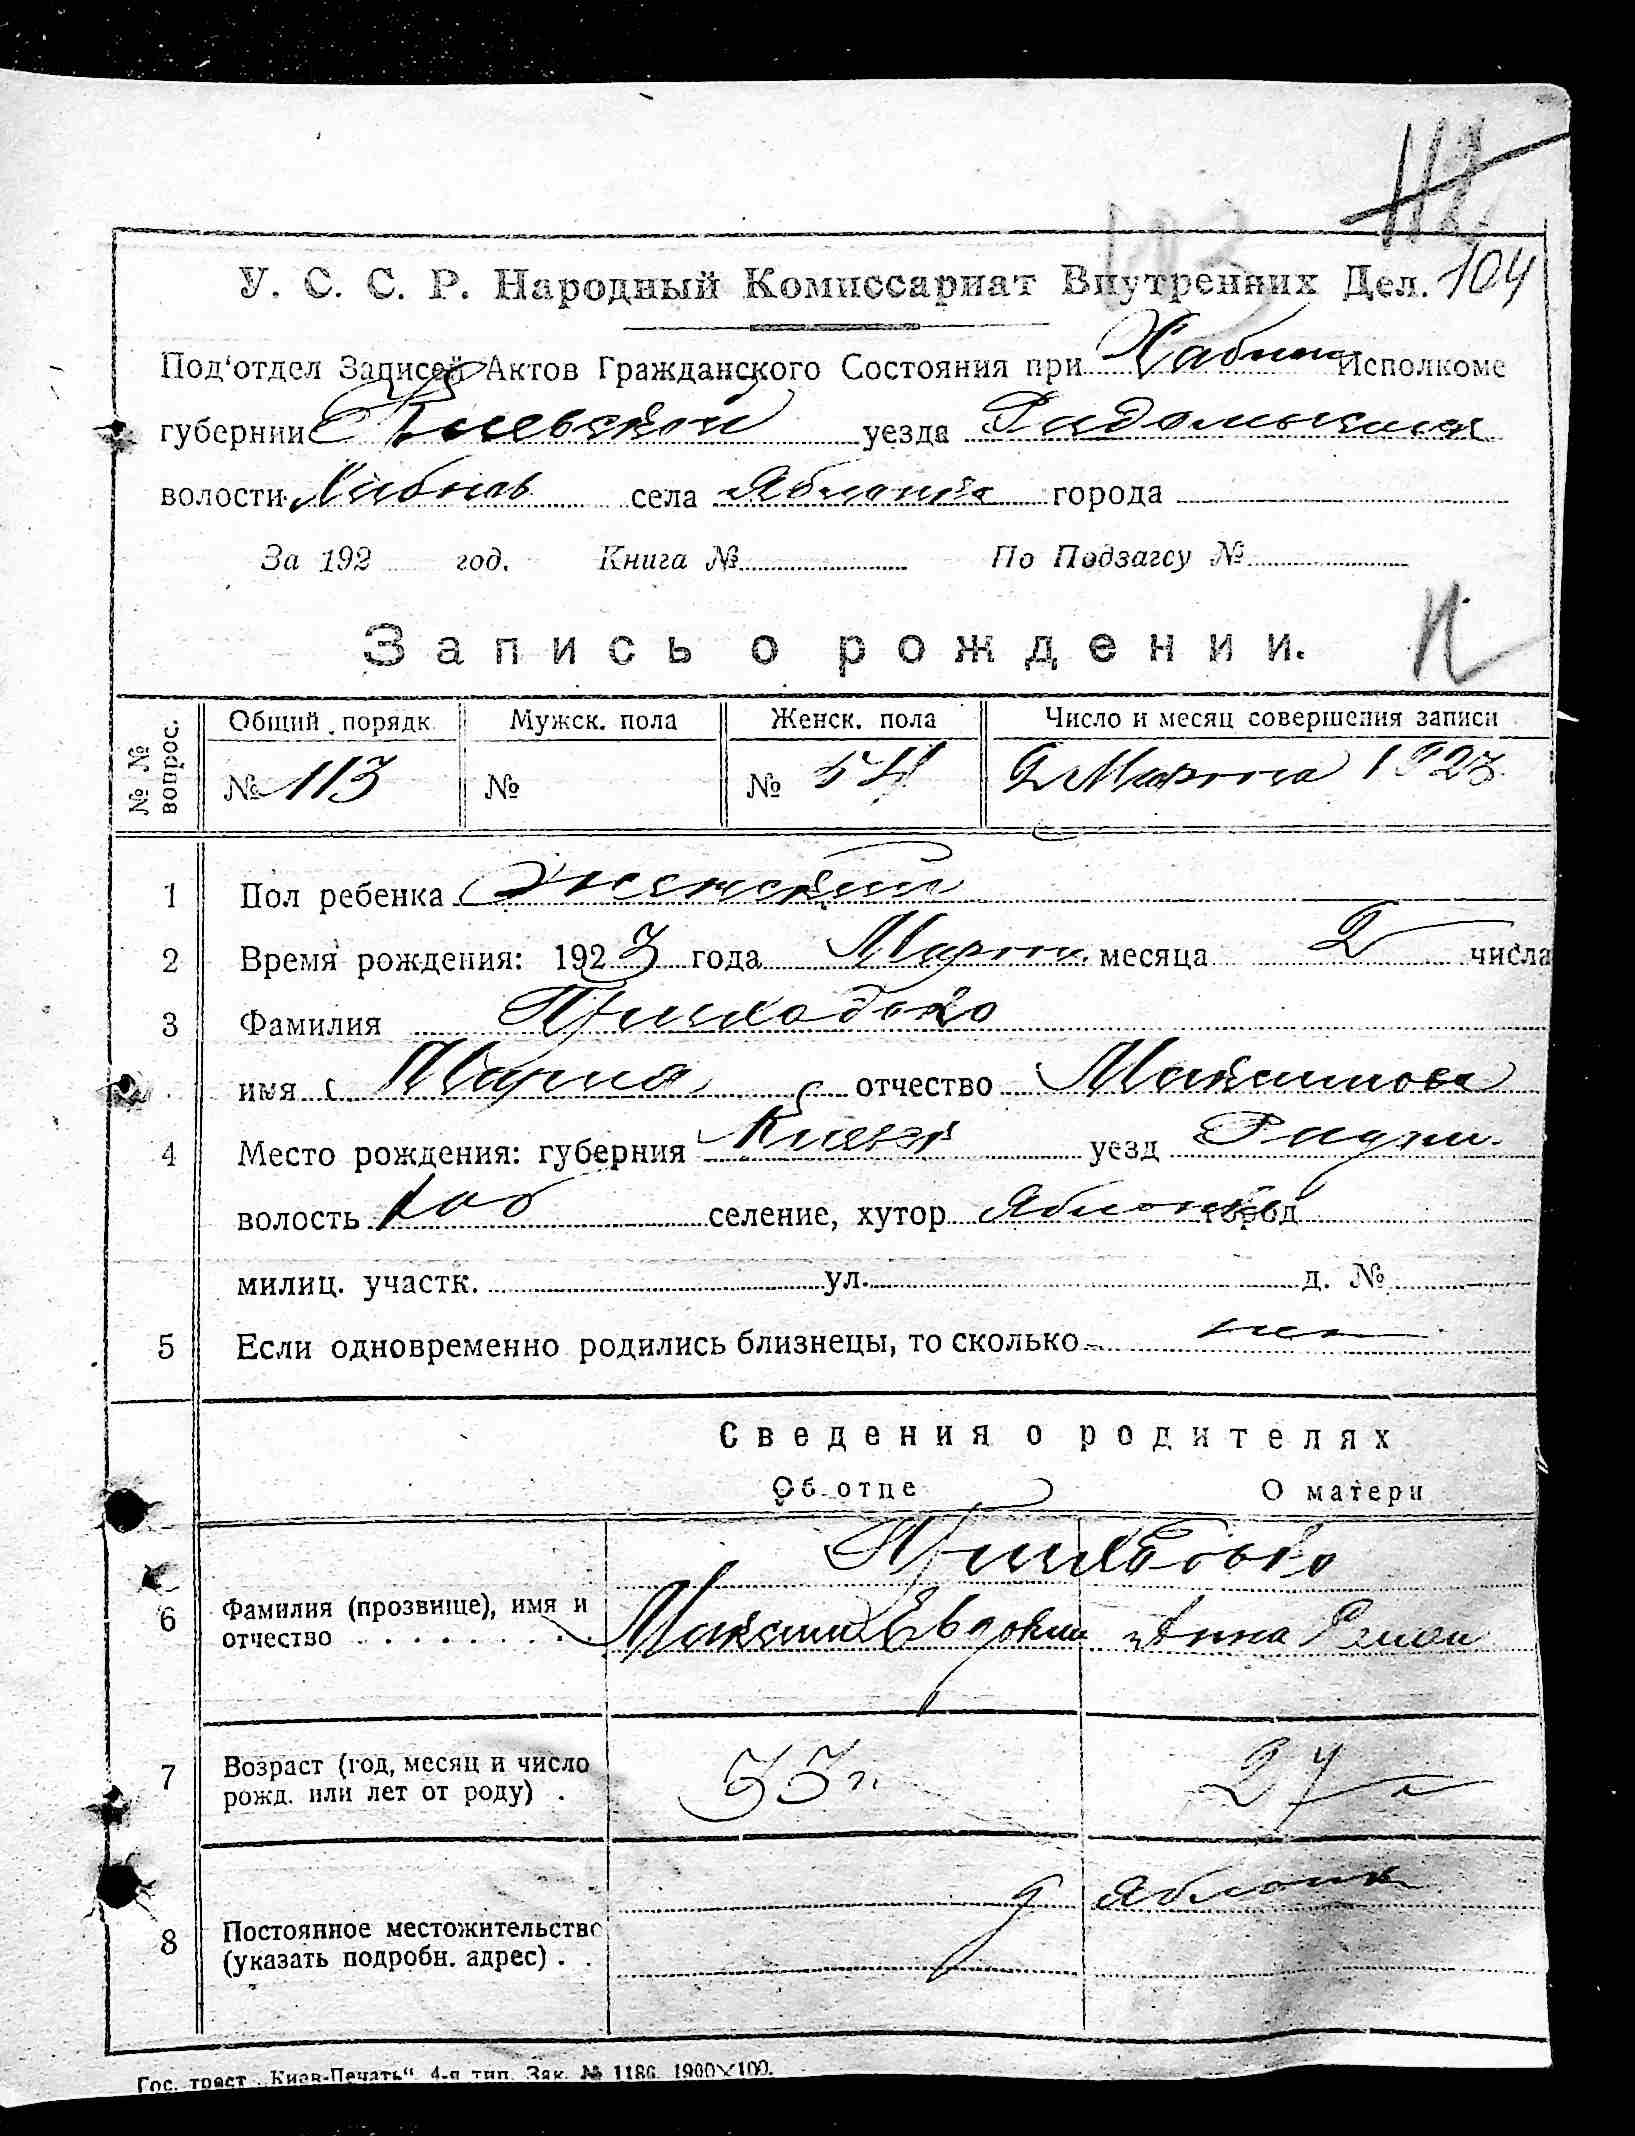 104
У. С. С. Р. Народный Комиссариат Внутренних Дел.
Под'отдел Записей Актов Гражданского Состояния при Хабин Исполкоме
губернии Киевской уезда Радомысльск
волости Хабнов села Яблонка города
За 192 год. Книга № По Подзагсу №
Запись о рождении.
№ № вопрос. Общий порядк. Мужск. пола Женск. пола Число и месяц совершения записи
№ 113 № № 54 2 Марта 1923
1 Пол ребенка Женский
2 Время рождения: 1923 года Марта месяца 2 числа
3 Фамилия Приходько
имя Мария отчество Максимова
4 Место рождения: губерния Киевск уезд
волость Хаб селение, хутор Яблонка город
милиц. участк. ул. д. №
5 Если одновременно родились близнецы, то сколько нет
Сведения о родителях
Об отце О матери
Приходько
6 Фамилия (прозвище), имя и
отчество Максим Евдоким Анна
7 Возраст (год, месяц и число
рожд. или лет от роду) . 33 г. 27
Яблонка
8 Постоянное местожительство
(указать подробн. адрес) . .
Гос. трест „Киев-Печать“ 4-я тип. Зак. № 1186. 1900×100.